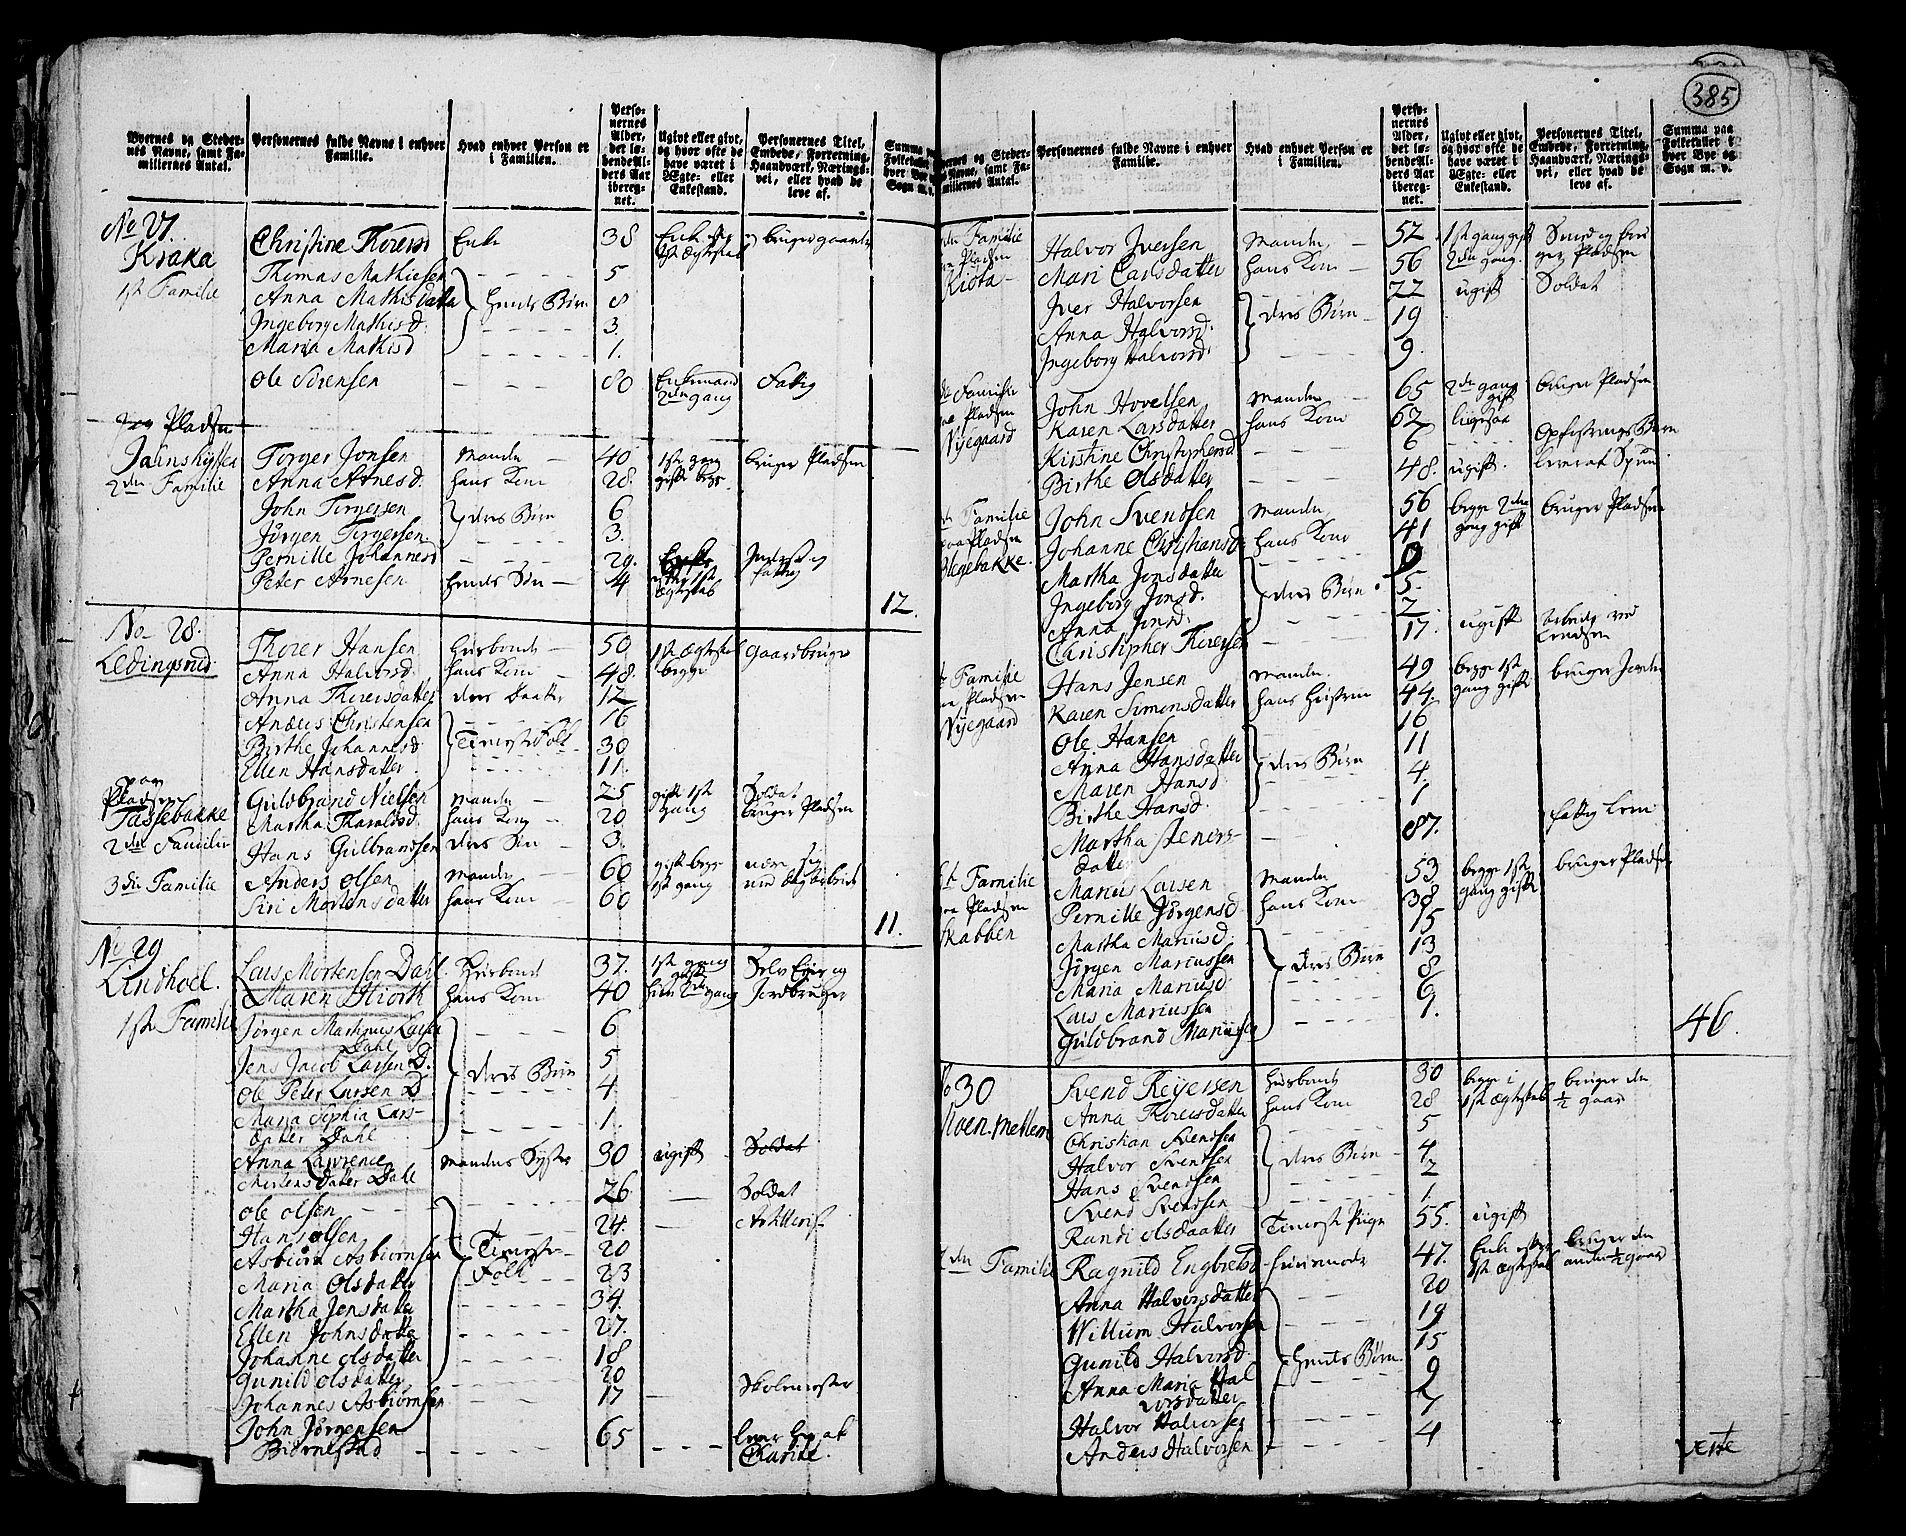 385
Byernes og Steder-
nes Navne, samt Fa-
miliernes Antal.
Personernes fulde Navne i enhver
Familie.
Hvad enhver Person er
i Familien.
Perso-
nernes
Alder,
det lø-
bende Al-
ders Aar
ibereg-
net.
Ugivt eller givt,
og hvor ofte de
have været i
Ægte- eller
Enkestand.
Personernes Titel,
Embede, Forretning,
Haandværk, Nærings-
vei, eller hvad de
leve af.
Summa paa
Folketallet i
hver Bye og
Sogn m. v.
No 27.
Kraka
1ste Familie
Christine Thorersd Enke 38
Thomas Mathiesen 5
Anna Mathisdatter hendes Børn 8
Ingeborg Mathisd. 3.
Maria Mathisd 1.
Ole Sørensen 80 Enkemand 2den gang Fattig
paa Pladsen
2den Familie
Torger Jonsen Manden 40 1ste gang bruger Pladsen
Anna Arnesd. hans Kone 28. gifte begge
John Torgersen deres Børn 6
Jørgen Torgersen. 3.
Pernille Johannesd 29.
Peter Arnesen hendes Søn 4
12.
No 28.
Ledingsrud
Thorer Hansen Husbonde 50 1ste Ægteskab Gaardbruger
Anna Halvorsd. hans Kone 48. begge
Anna Thorersdatter deres Daatter 12
Anders Christensen 16
Birthe Johannesd. Tieneste Folk 30
Ellen Hansdatter 11.
paa
Pladsen
Tassebakke
2den Familie
Guldbrand Nielsen Manden 25 gift 1ste Soldat
Martha Tharaldsd. hans Kone 20 gang bruger Pladsen
Hans Gulbrandsen deres Søn 3.
3die Familie
Anders Olsen Manden 60 gifte begge
Siri Mortensdatter hans Kone 60 1ste gang
11.
No 29
Lindhoel.
1ste Familie
Lars Mortensen Dahl Husbond 37. 1ste gang Selv Eier og
Maren Hiorth hans Kone 40 hun 2de gang Jordbruger
Jørgen Marthinus Larsen
Dahl 6
Jens Jacob Larsen D. 5
Ole Peter Larsen D. deres Børn 4
Maria Sophia Lars-
datter Dahl 1.
Anna Lawrence
Mortensdatter Dahl Mandens Syster 30 ugift Soldat
Ole Olsen 26 Soldat
Hans Olsen 24.
Asbiørn Asbiørnsen Tieneste- 20
Maria Olsdatter Folk 23
Martha Jensdatter 34.
Ellen Johnsdatter 27.
Johanne Olsdatter 18
Gunild Olsdatter 20
Johannes Asbiørnsen 17 Skolemester
John Jørgensen
Biørnestad 65
Byernes og Steder-
nes Navne, samt Fa-
miliernes Antal.
Personernes fulde Navne i enhver
Familie.
Hvad enhver Person er
i Familien.
Perso-
nernes
Alder,
det lø-
bende Al-
ders Aar
ibereg-
net.
Ugivt eller givt,
og hvor ofte de
have været i
Ægte- eller
Enkestand.
Personernes Titel,
Embede, Forretning,
Haandværk, Nærings-
vei, eller hvad de
leve af.
Summa paa
Folketallet i
hver Bye og
Sogn m. v.
Familie
Pladsen
Halvor Iversen Manden 52. 1ste gang gift
Mari Larsdatter hans Kone 56 2den gang.
Iver Halvorsen 22 ugift Soldat
Anna Halvorsd. deres Børn 19
Ingeborg Halvorsd. 9.
Familie
paa Pladsen
Nyegaard
John Hovelsen Manden 65 2den gang gift bruger Pladsen
Karen Larsdatter hans Kone 62 ligesaa
Kirstine Christophersd 6 Opfostrings Barn
Birthe Olsdatter 48. ugift.
Familie
paa Pladsen
John Svendsen Manden 56 begge 2den bruger Pladsen
Johanne Christiansd. hans Kone 41 gang gift
Martha Jonsdatter 9
Ingeborg Jonsd. deres Børn 5.
Anna Jonsd. 2.
Christopher Thorersen 17. ugift
Familie
paa Pladsen
Nyegaard
Hans Jensen Manden. 49 begge 1ste
Karen Simensdatter hans Hustrue 44. gang gifte
Ole Hansen 16
Anna Hansdatter deres Børn 11
Maren Hansd. 4.
Birthe Hansd. 1
Martha Steners-
datter 87.
Familie
paa Pladsen
Skabben
Marius Larsen Manden 53 begge 1ste bruger Pladsen
Pernille Jørgensd. hans Kone 38 gang gifte
Martha Mariusd. 15
Jørgen Mariussen deres Børn 13
Maria Mariusd. 8
Lars Mariussen 6
Guldbrand Mariussen 1.
46.
No 30
Svend Reyersen Husbonde 30 begge i bruger den
Anna Thorersdatter hans Kone 28 1ste Ægteskab ½ gaard
Christian Svendsen 5
Halvor Svendsen deres Børn 4
Hans Svendsen 2
Svend Svendsen 1
Randi Olsdatter Tieneste Pige 55. ugift
2den Familie
Ragnild Engbretsd. Huusmoder 47. Enke efter bruger den
1ste Ægteskab anden ½ gaard
Anna Halvorsdatter 20
Willum Halvorsen 19
Gunild Halvorsd. hendes Børn. 15
Anna Maria Hal
vorsdatter 9
Halvor Halvorsen 7
Anders Halvorsen 4